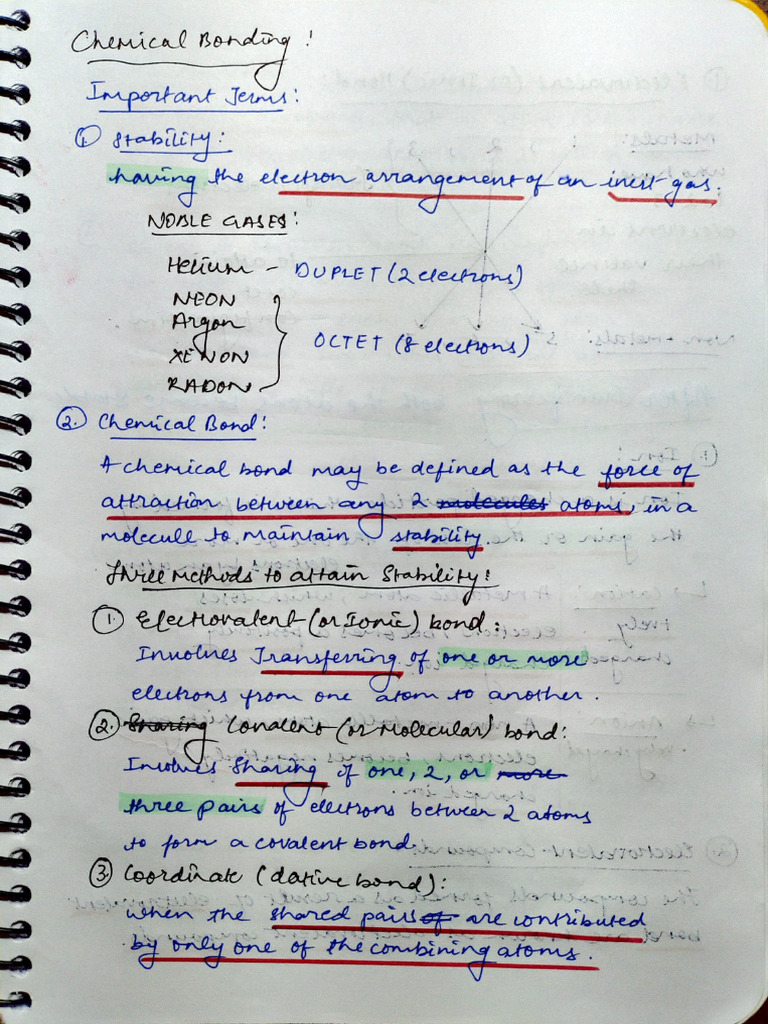 Chemical Bonding!
Important Terms:
① Stability:
having the electron arrangement of an inert gas.
NOBLE GASES:
Helium - DUPLET (2 electrons)
NEON
Argon
XENON
RADON
OCTET (8 electrons)
② Chemical Bond:
A chemical bond may be defined as the force of
attraction between any 2 molecules atoms, in a
molecule to maintain stability.
Three Methods to attain Stability:
① Electrovalent (or Ionic) bond:
Involves Transferring of one or more
electrons from one atom to another.
② Sharing Covalent (or Molecular) bond:
Involves Sharing of one, 2, or more
three pairs of electrons between 2 atoms
to form a covalent bond.
③ Coordinate (dative bond):
when the shared pairs of are contributed
by only one of the combining atoms.